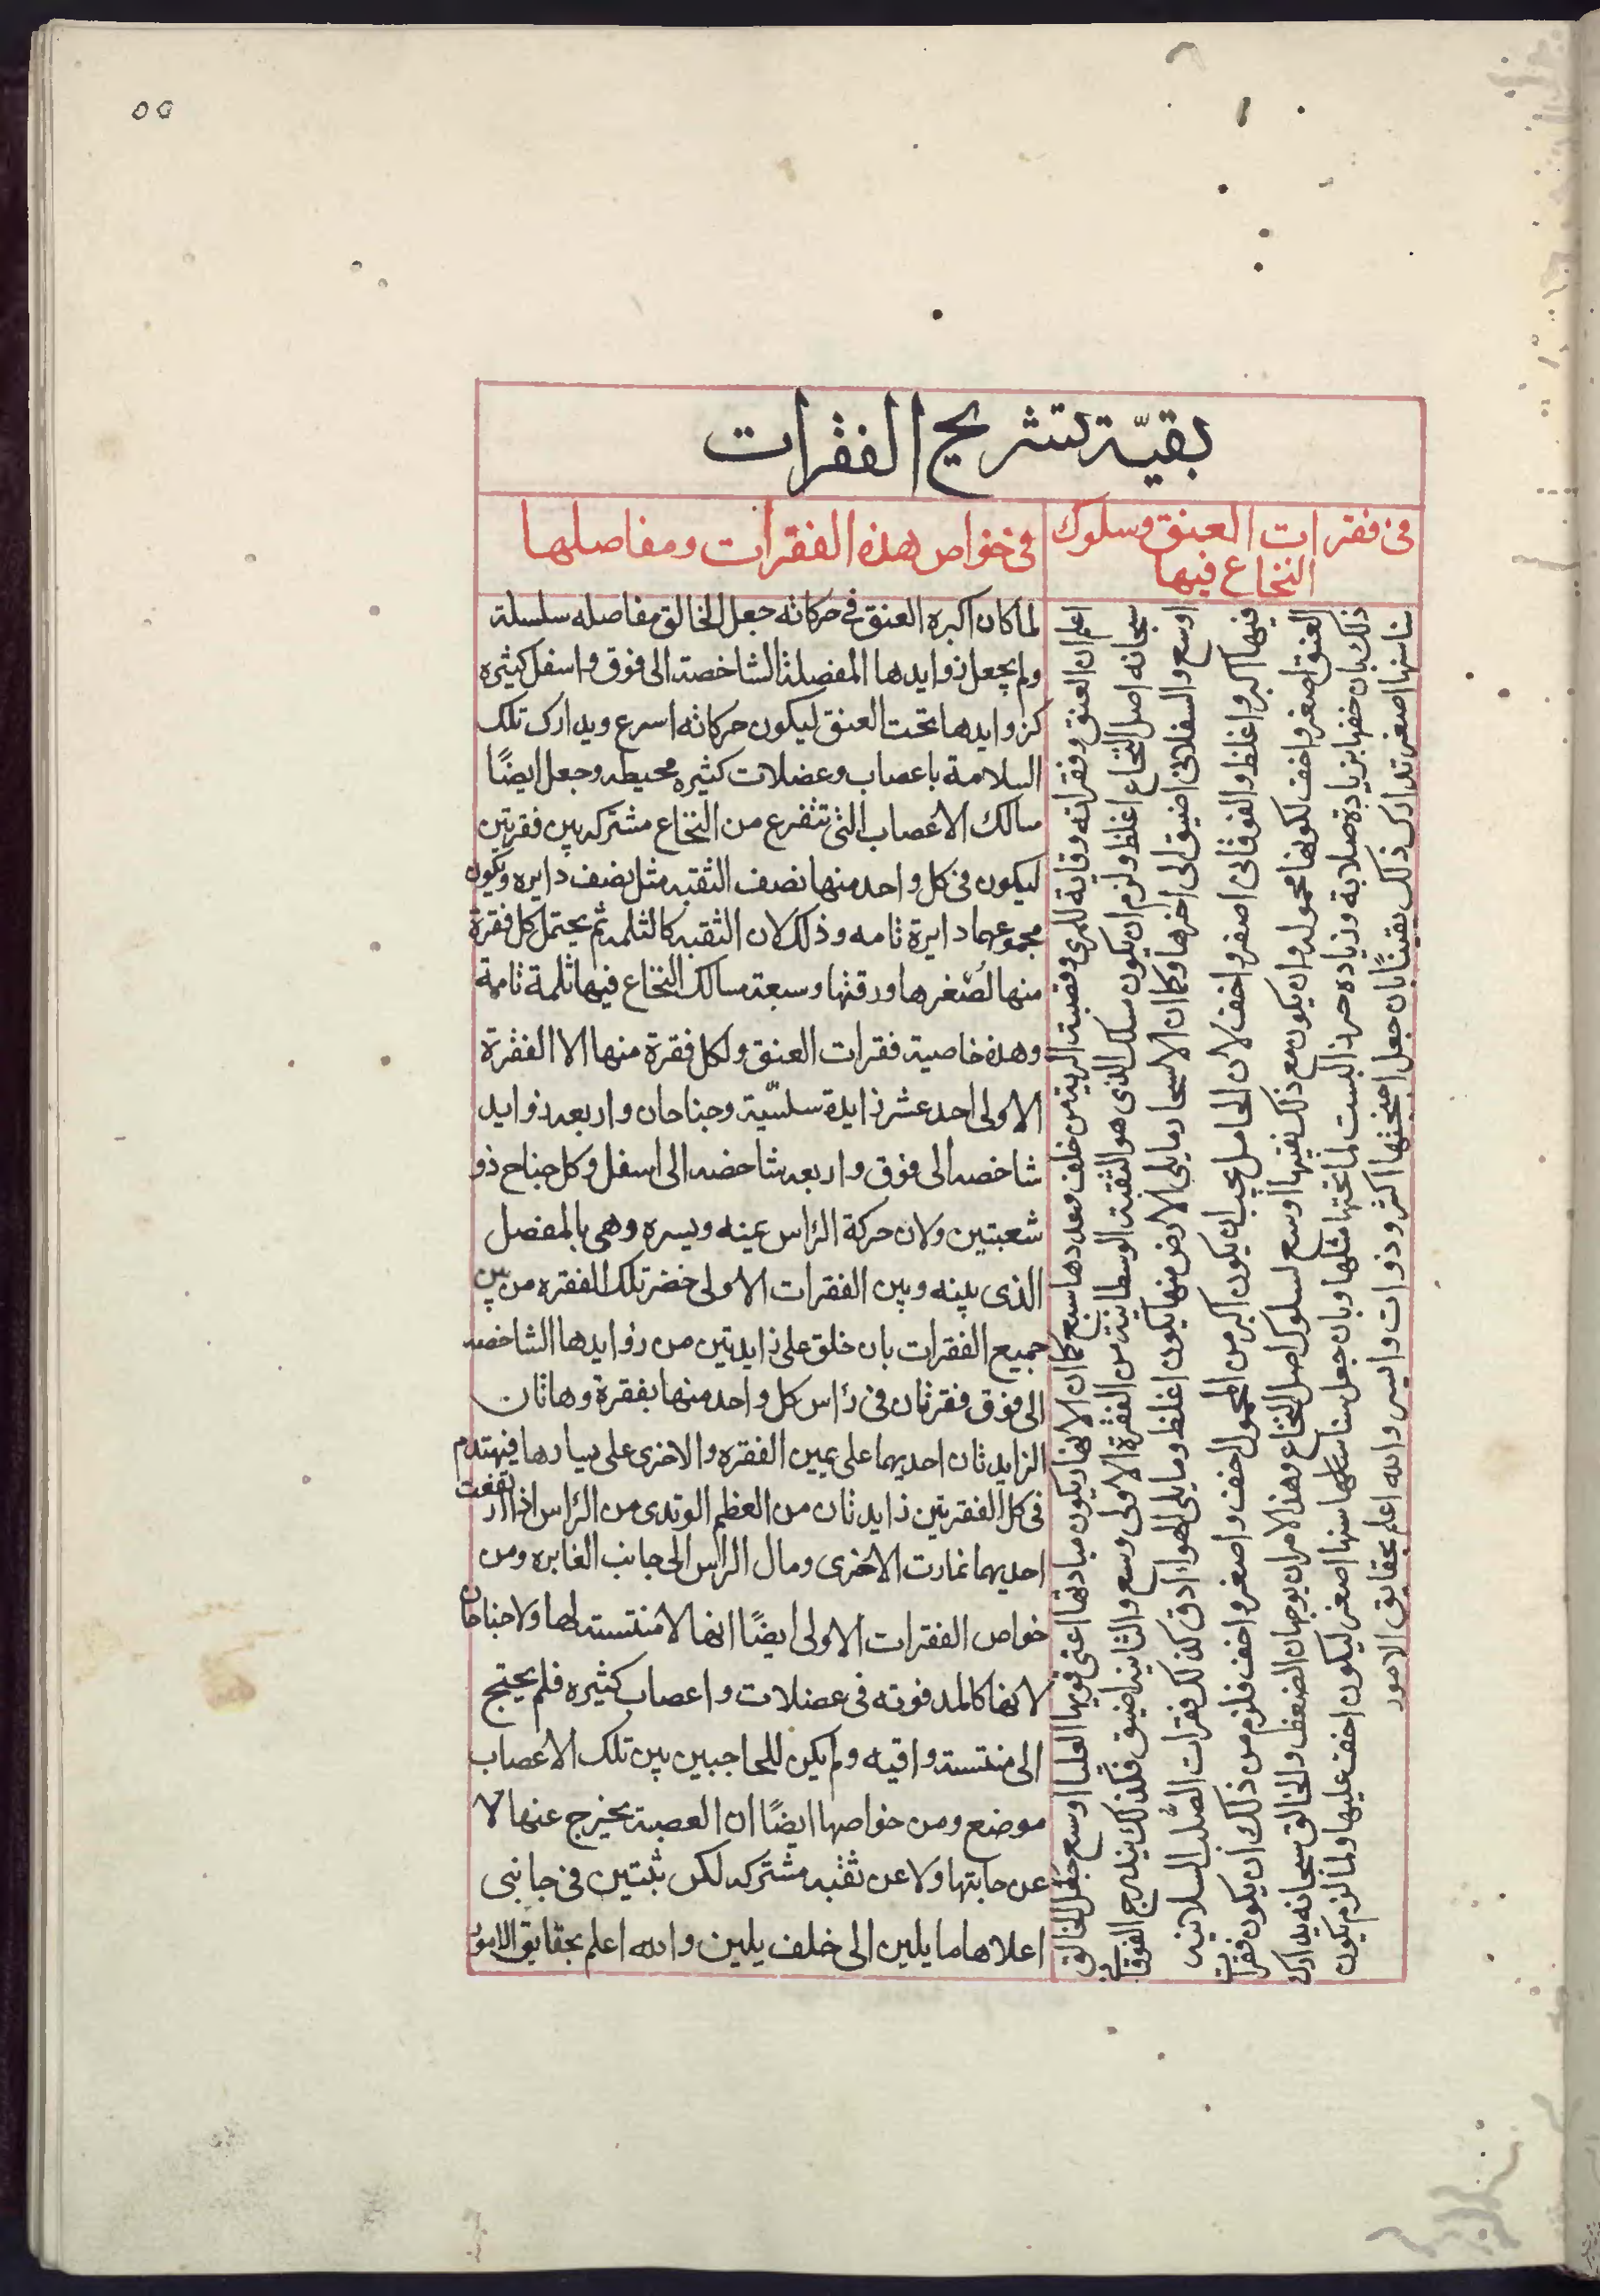 ٥٥
بقيّة تشريح الفقرات
في فقرات العنق وسلوك
النخاع فيها
اعلم ان العنق وفقراته وقاية للمري وقصبة الرية من خلف وعددها سبع كما ان الانهار يكون مبادئها اعنى فويها العليا اوسع جعل الخالق
سبحانه اصل النخاع اغلظ ولزم ان يكون مسلك الذى هو الثقبة الوسطانية من الفقرة الاولى وسع والثانيه اضيق فكذلك يندرج الفوقانى
اوسع والسفلانى اضيق الى اخرها وكما ان الاسجار مايلى الارض منها يكون اغلظ ومايلى الهوا ادق كذلك فقرات الصلب السلانيه
فيها اكبر واغلظ والفوقانى اصغر واخف لان الحامل يجب ان يكون اكبر من المحمول اخف واصغر واخف فلزم من ذلك ان يكون فقرات
العنق اصغر واخف لكونها محموله وان يكون مع ذلك ثقبها اوسع لسلوك اصل النخاع وهذا الامران يوجهان الضعف والخالق سبحانه يدارك
ذلك بان خفها بزيادة صلابة وزياده حرز ليست لما تحتها مثلها وبان جعل سناسنها سنها اصغر ليكون اخف عليها ولما لزم يكون
سناسنها اصغر تدارك ذلك يقينًا بان جعل اجنحتها اكثر وذوات واليس والله اعلم بحقايق الامور
في خواص هذه الفقرات ومفاصلها
لما كان اكبره العنق في حركاته جعل الخالق مفاصله سلسلة
ولم يجعل زوايدها المفصلة الشاخصة الى فوق واسفل كثيره
كزوايدها تحت العنق ليكون حركاته اسرع ويدارك تلك
السلامة باعصاب وعضلات كثيره محيطه وجعل ايضًا
مسالك الاعصاب التي تتفرع من النخاع مشتركه بين فقرتين
ليكون في كل واحد منها نصف الثقبه مثل نصف دايره ويكون
مجموعهما دايرة تامه وذلك لان الثقبه كالثلمه ثم يحتمل كل فقرة
منها لصغرها ورقتها وسعة مسالك النخاع فيها ثلمة تامة
وهذه خاصية فقرات العنق ولكل فقرة منها الا الفقرة
الاولى احد عشر زايدة سلسّية وجناحان واربعه زوايد
شاخصه الى فوق واربعه شاخصه الى اسفل وكل جناح ذو
شعبتين ولان حركة الراس يمينه ويسره وهى بالمفصل
الذى بينه وبين الفقرات الاولى خضر تلك الفقره من بين
جميع الفقرات بان خلق على زايدتين من زوايدها الشاخصه
الى فوق فقرتان في رأس كل واحد منها بفقرة وهاتان
الزايدتان احديهما على يمين الفقره والاخرى على يسارها فيهندم
في كل الفقرتين زايدتان من العظم الوتدى من الراس اذا ارتفعت
احديهما غارت الاخرى ومال الراس الى جانب الغابره ومن
خواص الفقرات الاولى ايضًا انها لا منتسسة لها ولا جناحان
لانها كالمدفونه في عضلات واعصاب كثيره فلم يحتج
الى منتسسة واقيه ولم يكن للحاجبين بين تلك الاعصاب
موضع ومن خواصها ايضًا ان العصبة يخرج عنها لا
عن جانبتها ولا عن ثقبه مشتركه لكن ثبتين في جانبى
اعلاها ما يلين الى خلف يلين والله اعلم بحقايق الامور